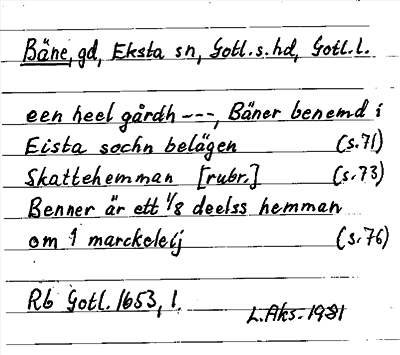 Bäne, gd, Eksta sn, Gotl. s. hd, Gotl. l.
een heel gårdh ---, Bäner benemd i
Eista sochn belägen (s. 71)
Skattehemman [rubr.] (s. 73)
Benner är ett 1/8 deelss hemman
om 1 marckeleij (s. 76)
Rb Gotl. 1653, 1.
L. Aks. 1981